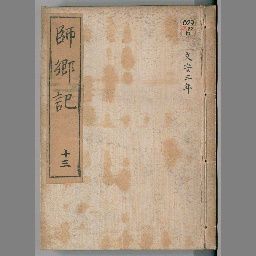 師郷記
十三
文安二年